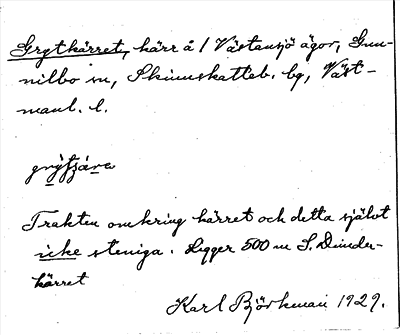 Grytkärret, kärr å 1 Västansjö ägor, Gun-
nilbo sn, Skinnskatteb. bg, Väst-
manl. l.
Trakten omkring kärret och detta självt
icke steniga. Ligger 500 m S. Dunder-
kärret
Karl Björkman 1929.